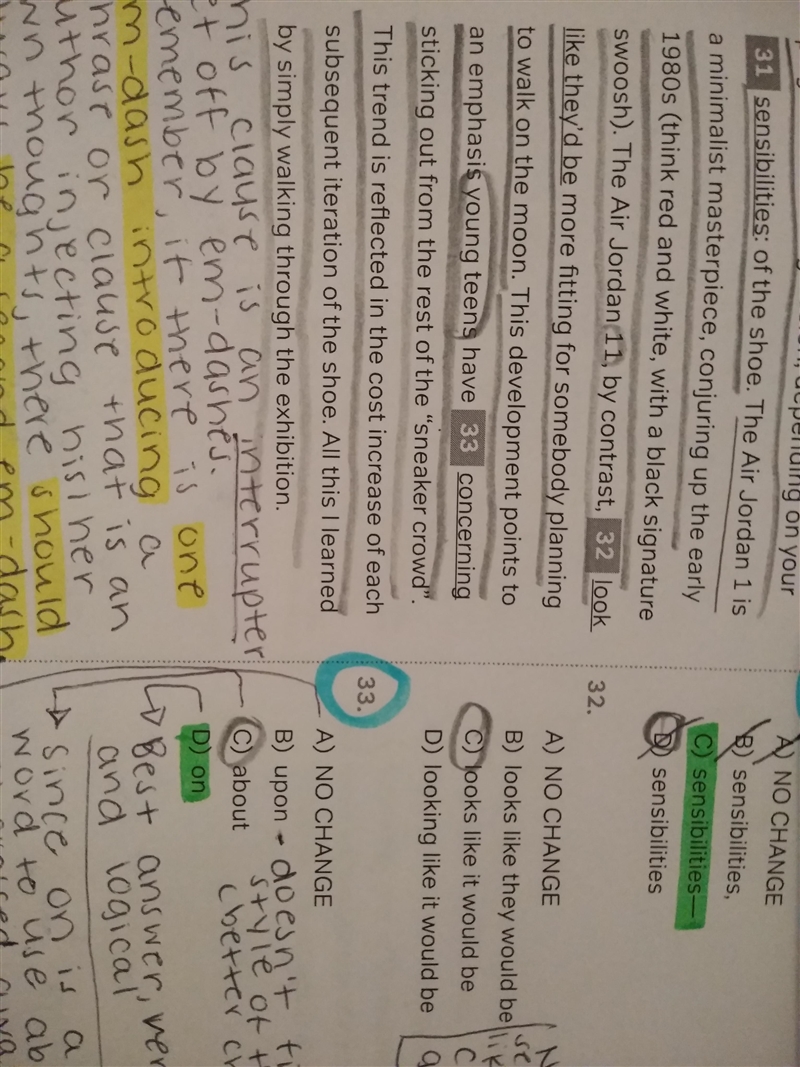 depending on your
31 sensibilities: of the shoe. The Air Jordan 1 is
a minimalist masterpiece, conjuring up the early
1980s (think red and white, with a black signature
swoosh). The Air Jordan 11, by contrast, 32 look
like they'd be more fitting for somebody planning
to walk on the moon. This development points to
an emphasis young teens have 33 concerning
sticking out from the rest of the "sneaker crowd".
This trend is reflected in the cost increase of each
subsequent iteration of the shoe. All this I learned
by simply walking through the exhibition.
his clause is an interrupter
et off by em-dashes.
emember, if there is one
m-dash introducing a
hrase or clause that is an
uthor injecting his/her
wn thoughts, there should
be a second em-dash
A) NO CHANGE
B) sensibilities,
C) sensibilities—
D) sensibilities
32.
A) NO CHANGE
B) looks like they would be
C) looks like it would be
D) looking like it would be
33.
A) NO CHANGE
B) upon - doesn't
style of
(better
C) about
D) on
Best answer,
and logical
since on is a
word to use